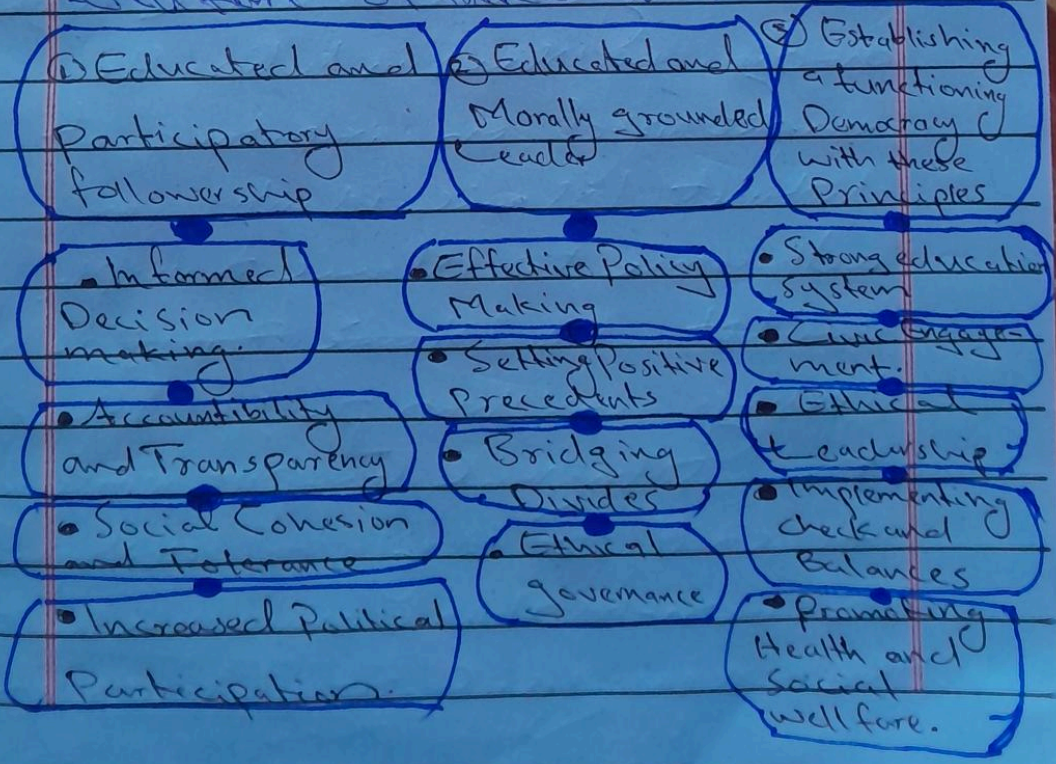 ① Educated and
Participatory
followership
• Informed
Decision
making.
• Accountibility
and Transparency
• Social Cohesion
and Tolerance
• Increased Political
Participation.
② Educated and
Morally grounded
Leader
• Effective Policy
Making
• Setting Positive
Precedents
• Bridging
Divides
• Ethical
governance
③ Establishing
a functioning
Democracy
with these
Principles
• Strong education
system
• Civic Engage-
ment.
• Ethical
Leadership
• Implementing
check and
Balances
• Promoting
Health and
Social
wellfare.